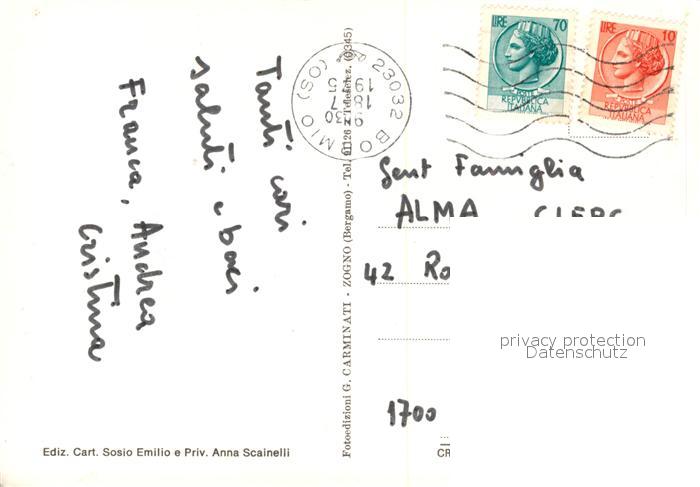 Tanti cari
saluti e baci
Franca, Andrea
Cristina
Ediz. Cart. Sosio Emilio e Priv. Anna Scainelli
Fotoedizioni G. CARMINATI - ZOGNO (Bergamo) - Tel. 91126 Teleselez. (0345)
23032 BO MIO (SO)
9 30
18 7
19 5
LIRE 70
REPVBBLICA
ITALIANA
LIRE 10
REPVBBLICA
ITALIANA
Gent Famiglia
ALMA
42 Ro
privacy protection
Datenschutz
1700
CR